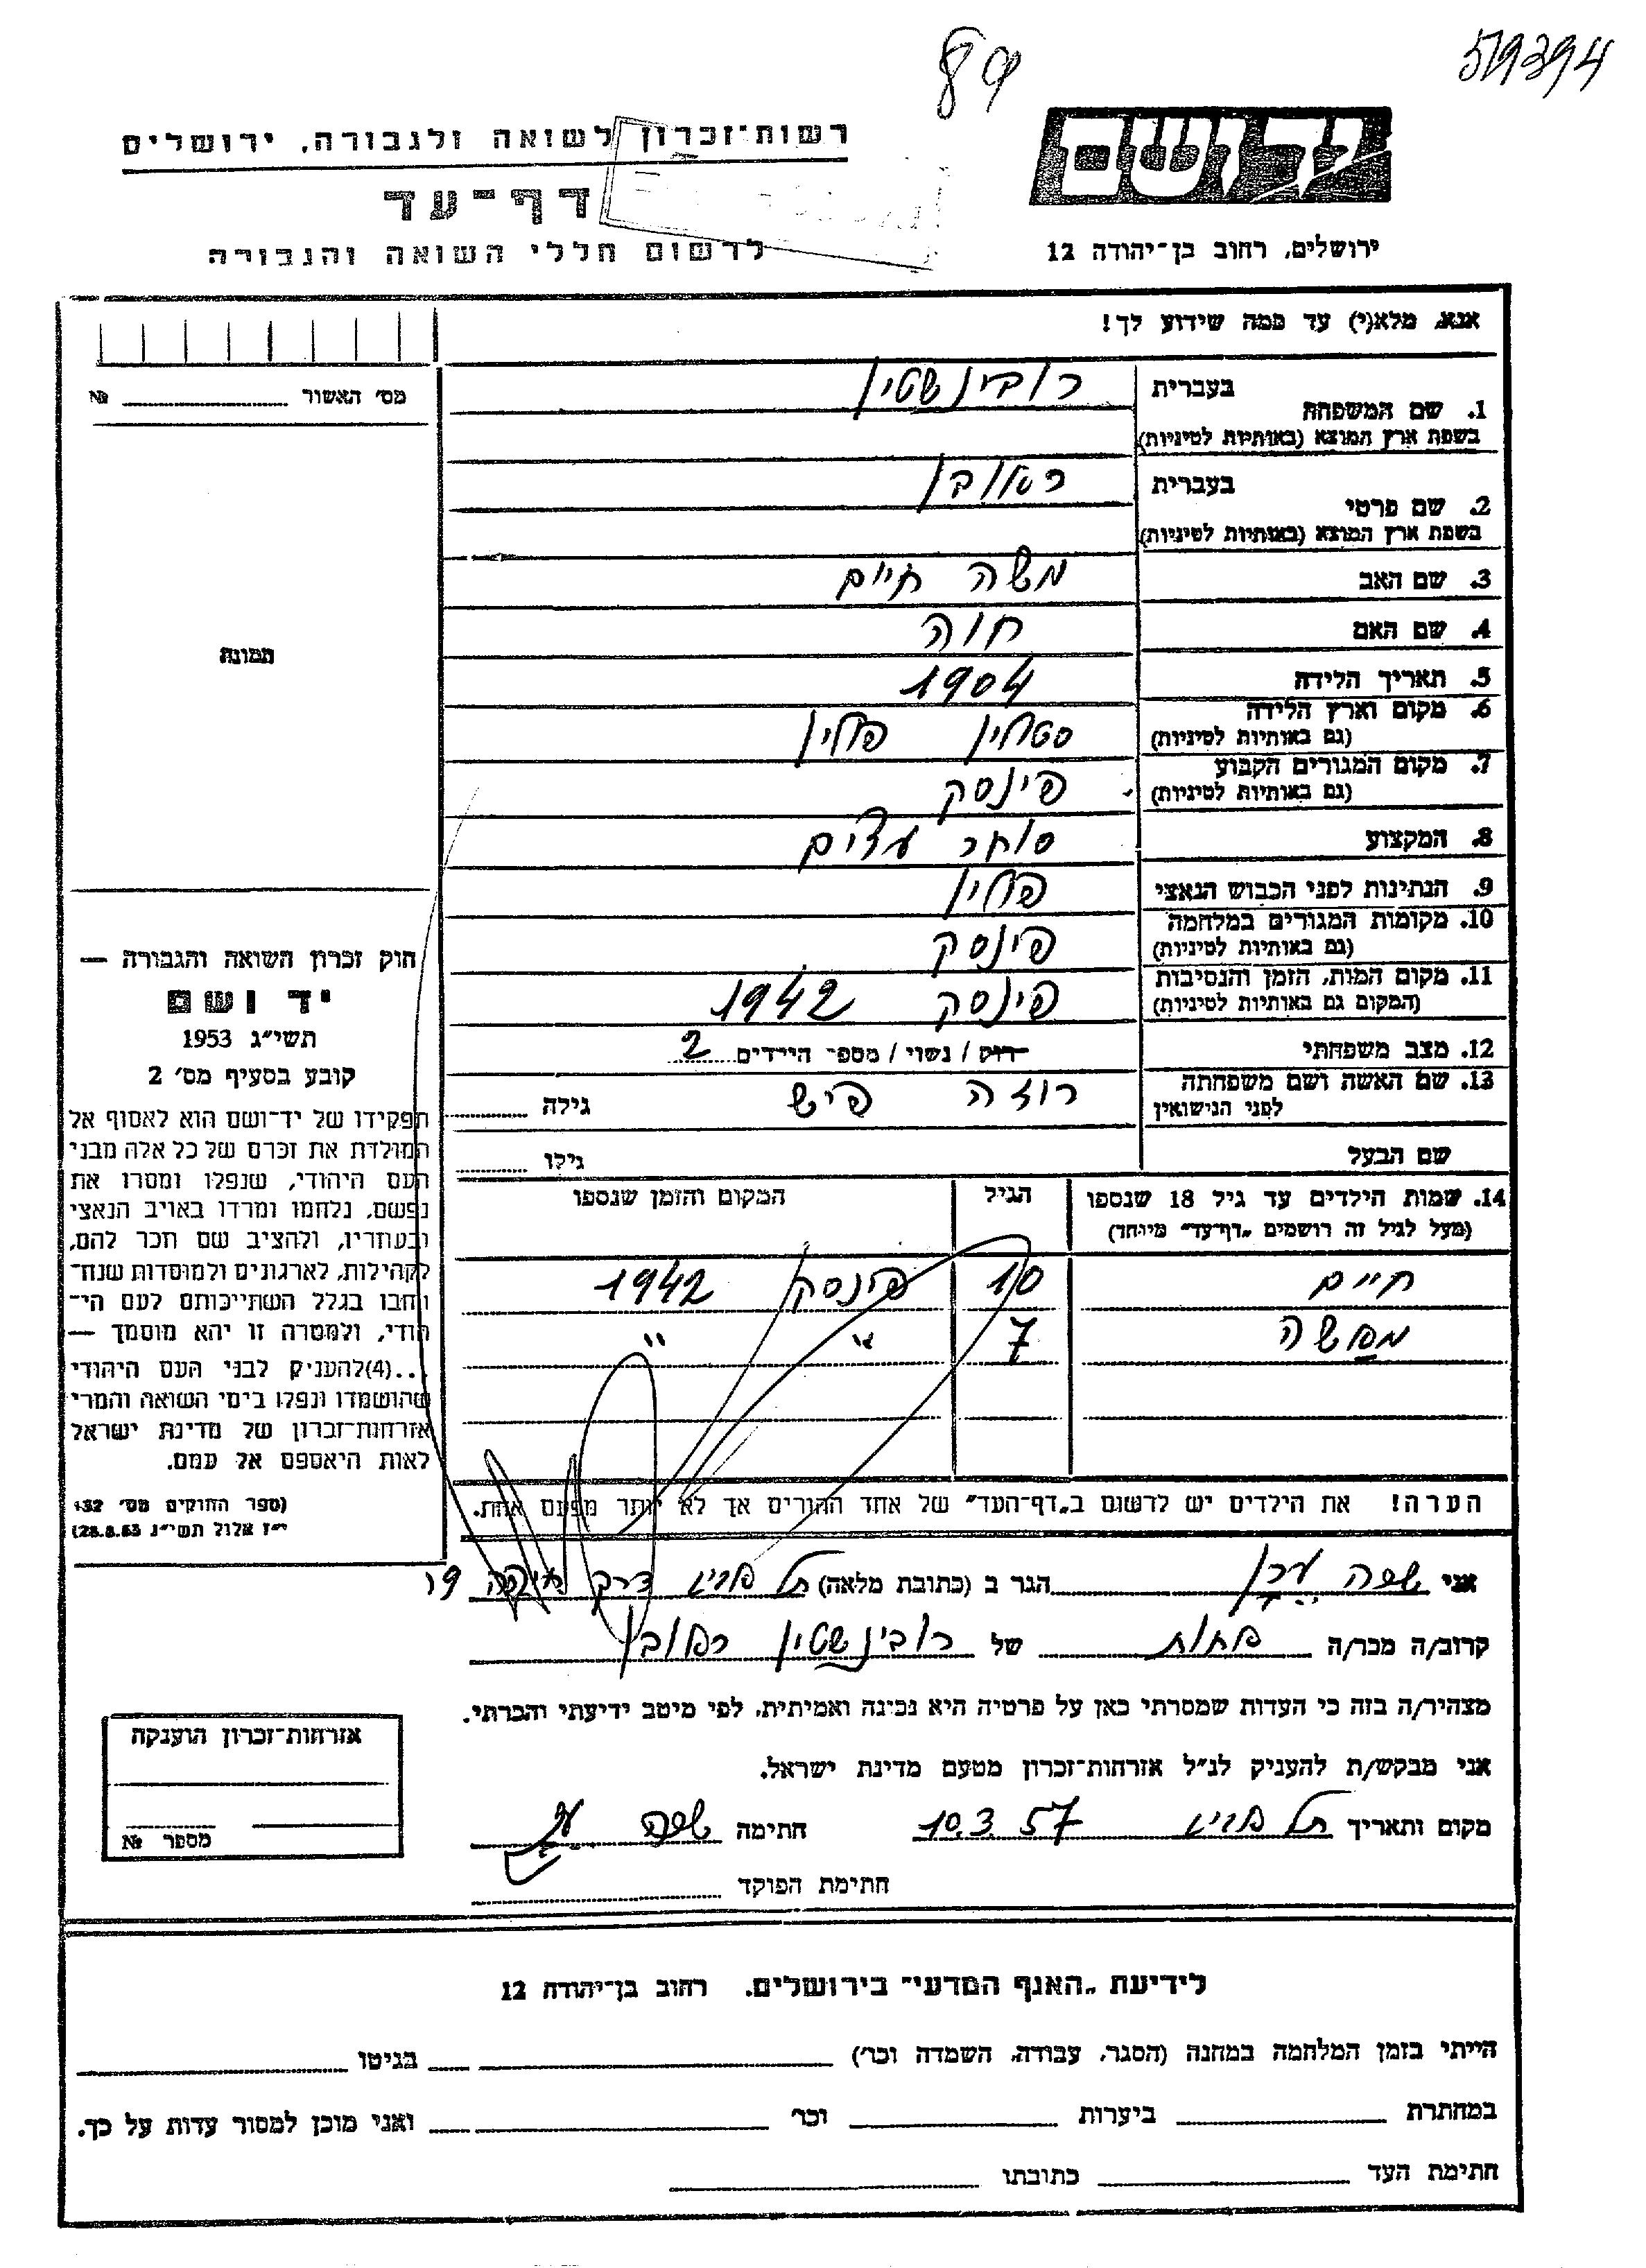 89
519394
יד ושם
ירושלים, רחוב בן־יהודה 12
רשות־זכרון לשואה ולגבורה, ירושלים
דף־עד
לרשום חללי השואה והגבורה
אנא, מלא(י) עד כמה שידוע לך!
1. שם המשפחה בעברית רובינשטין
בשפת ארץ המוצא (באותיות לטיניות)
2. שם פרטי בעברית ראובן
בשפת ארץ המוצא (באותיות לטיניות)
3. שם האב משה חיים
4. שם האם חוה
5. תאריך הלידה 1904
6. מקום וארץ הלידה סטולין פולין
(גם באותיות לטיניות)
7. מקום המגורים הקבוע פינסק
(גם באותיות לטיניות)
8. המקצוע סוחר עצים
9. הנתינות לפני הכבוש הנאצי פולין
10. מקומות המגורים במלחמה פינסק
(גם באותיות לטיניות)
11. מקום המות, הזמן והנסיבות פינסק 1942
(המקום גם באותיות לטיניות)
12. מצב משפחתי רוק / נשוי / מספר הילדים 2
13. שם האשה ושם משפחתה רוזה פיש גילה
לפני הנישואין
שם הבעל גילו
14. שמות הילדים עד גיל 18 שנספו הגיל המקום והזמן שנספו
(מעל לגיל זה רושמים „דף־עד" מיוחד)
חיים 10 פינסק 1942
משה 7 " "
הערה! את הילדים יש לרשום ב„דף־העד" של אחד ההורים אך לא יותר מפעם אחת.
מס' האשור №
תמונה
חוק זכרון השואה והגבורה —
יד ושם
תשי"ג 1953
קובע בסעיף מס' 2
תפקידו של יד־ושם הוא לאסוף אל
המולדת את זכרם של כל אלה מבני
העם היהודי, שנפלו ומסרו את
נפשם, נלחמו ומרדו באויב הנאצי
ובעוזריו, ולהציב שם וזכר להם,
לקהילות, לארגונים ולמוסדות שנח־
רבו בגלל השתייכותם לעם הי־
הודי, ולמטרה זו יהא מוסמך —
...(4)להעניק לבני העם היהודי
שהושמדו ונפלו בימי השואה והמרי
אזרחות־זכרון של מדינת ישראל
לאות היאספם אל עמם.
(ספר החוקים מס' 132
י"ז אלול תשי"ג 28.8.53)
אני שפה הגר ב (כתובת מלאה) תל אביב דרך 19
קרוב/ה מכר/ה אחות של רובינשטין ראובן
מצהיר/ה בזה כי העדות שמסרתי כאן על פרטיה היא נכונה ואמיתית, לפי מיטב ידיעתי והכרתי.
אני מבקש/ת להעניק לנ"ל אזרחות־זכרון מטעם מדינת ישראל.
מקום ותאריך תל אביב 10.3.57 חתימה
חתימת הפוקד
אזרחות־זכרון הוענקה
מספר №
לידיעת „האגף המדעי" בירושלים. רחוב בן־יהודה 12
הייתי בזמן המלחמה במחנה (הסגר, עבודה, השמדה וכר') בגיטו
במחתרת ביערות וכר' ואני מוכן למסור עדות על כך.
חתימת העד כתובתו